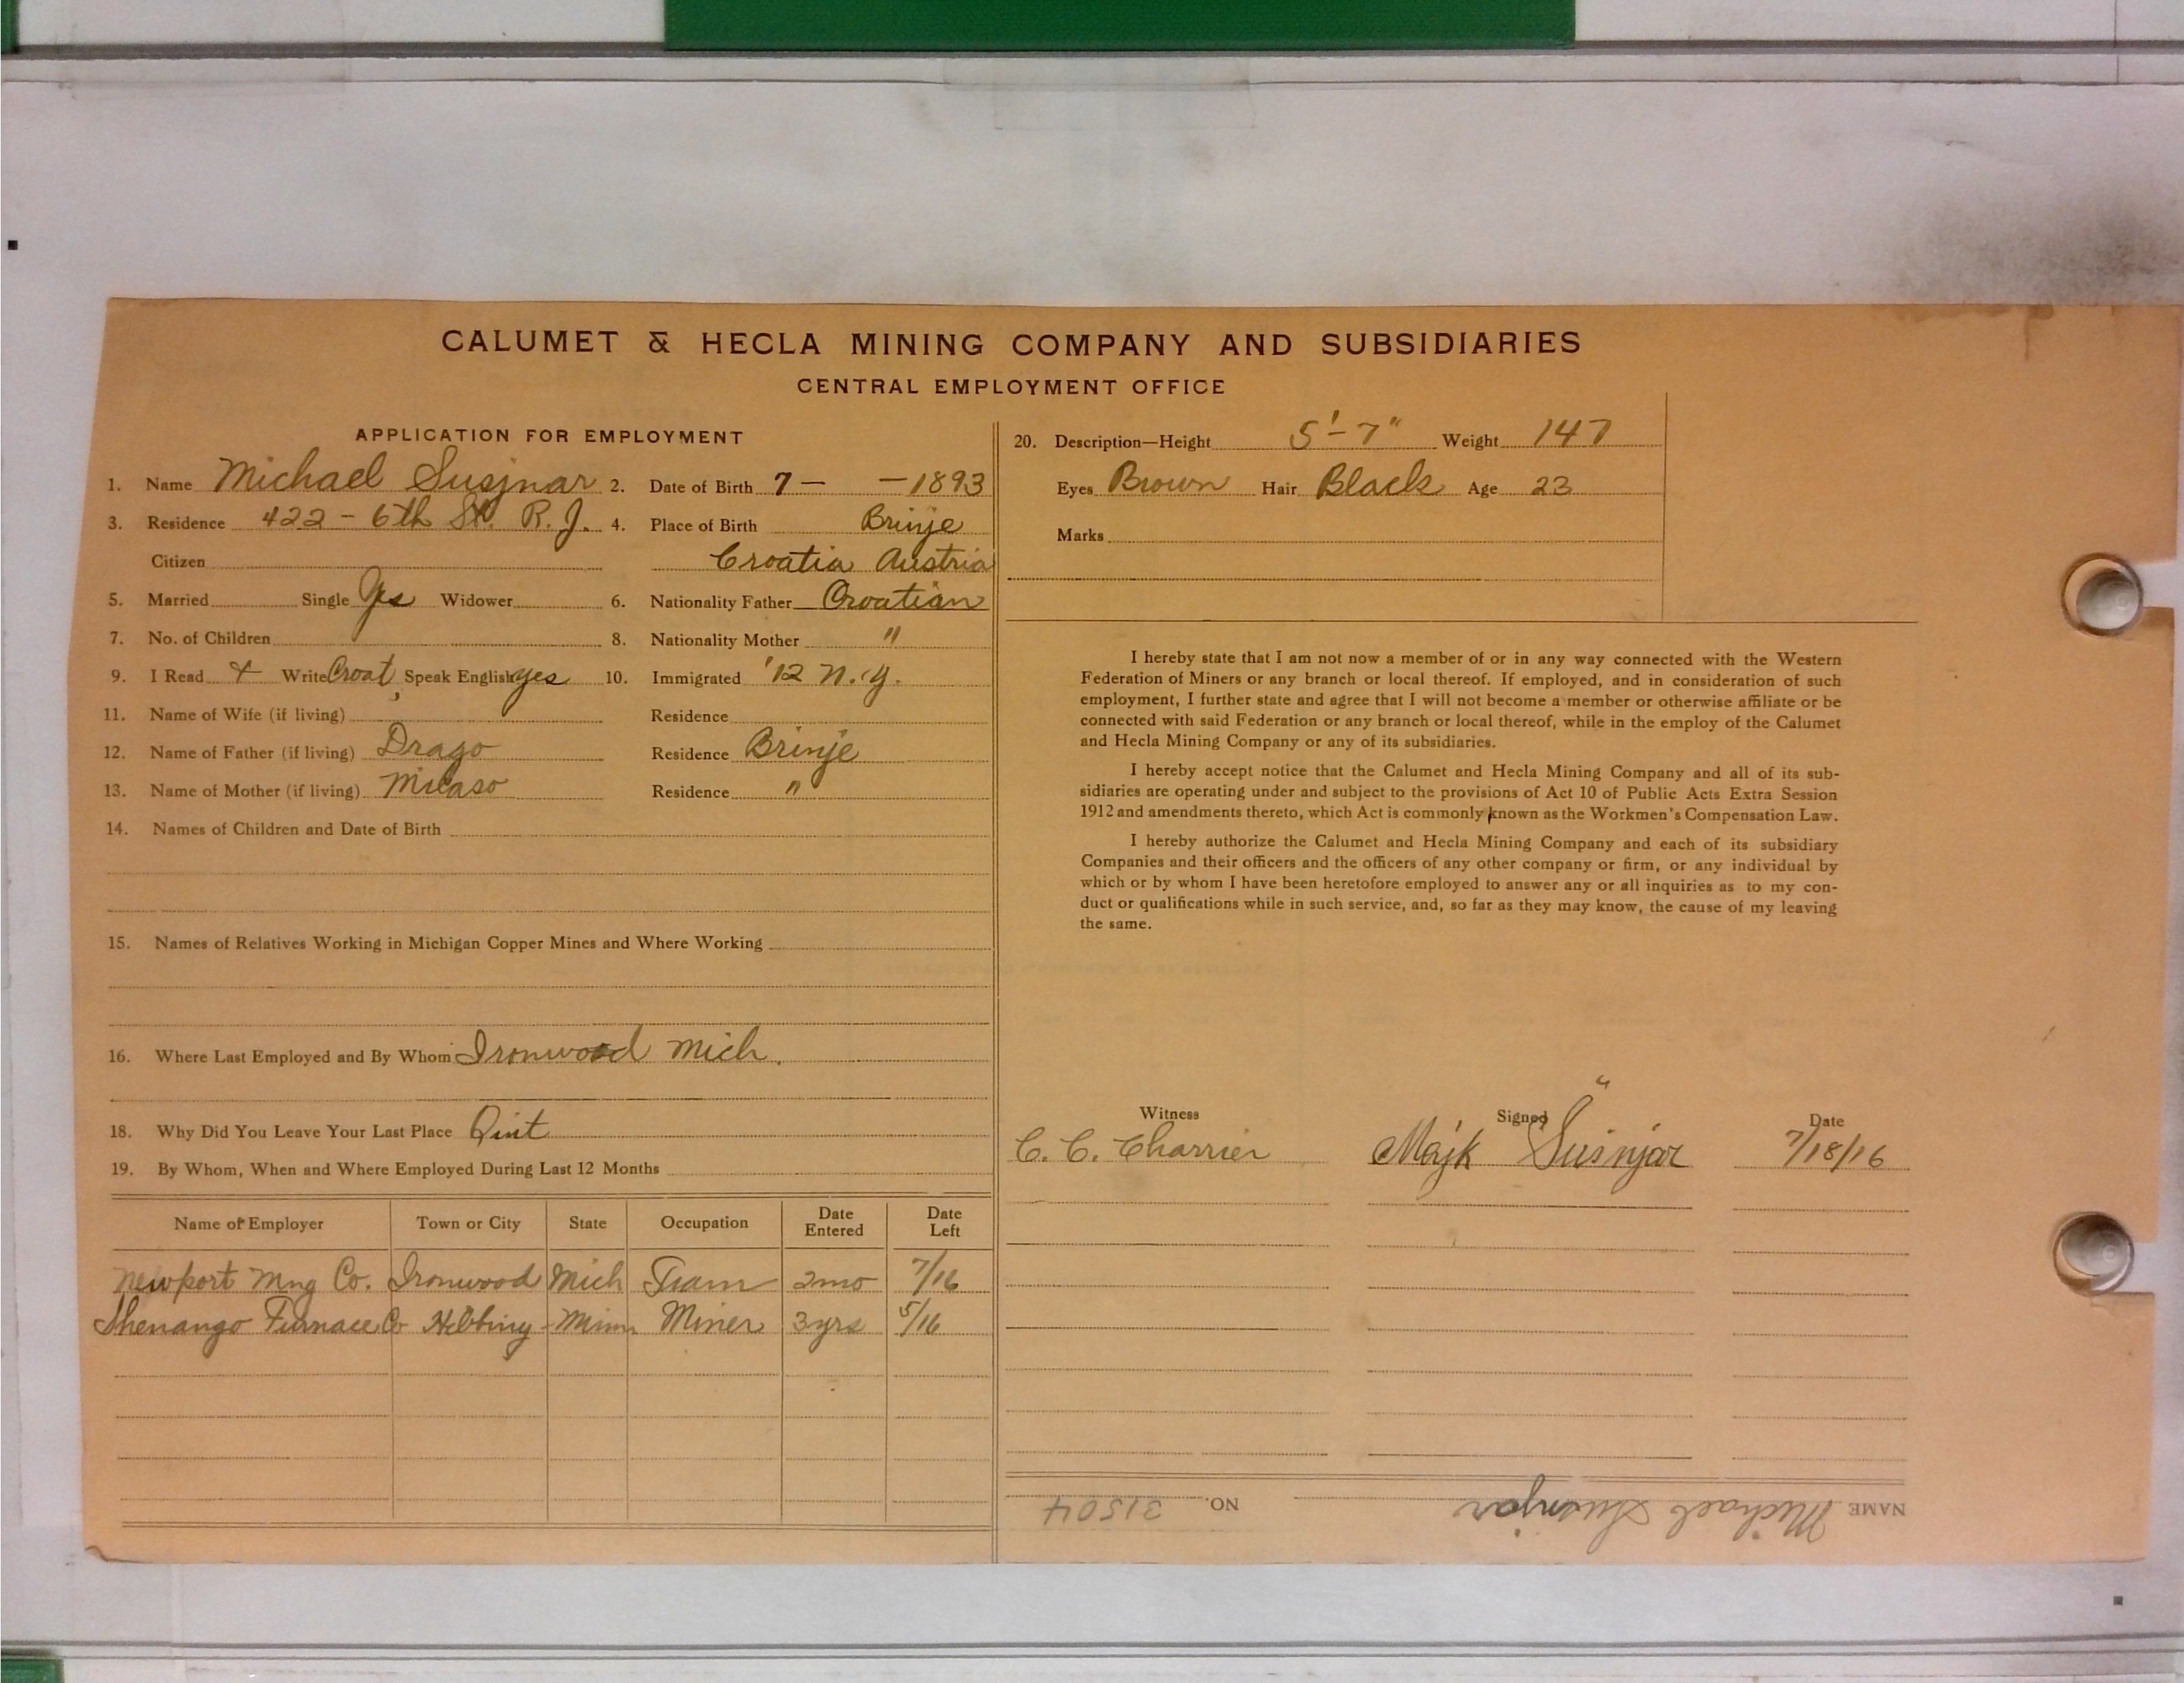 CALUMET & HECLA MINING COMPANY AND SUBSIDIARIES
CENTRAL EMPLOYMENT OFFICE
APPLICATION FOR EMPLOYMENT
1. Name Michael Susjnar 2. Date of Birth 7 — — 1893
3. Residence 422 - 6th St. R. J. 4. Place of Birth Brinje
Citizen Croatia Austria
5. Married Single Yes Widower 6. Nationality Father Croatian
7. No. of Children 8. Nationality Mother "
9. I Read + Write Croat, Speak English yes 10. Immigrated '12 N.Y.
11. Name of Wife (if living) Residence
12. Name of Father (if living) Drago Residence Brinje
13. Name of Mother (if living) Residence "
14. Names of Children and Date of Birth
15. Names of Relatives Working in Michigan Copper Mines and Where Working
16. Where Last Employed and By Whom Ironwood Mich.
18. Why Did You Leave Your Last Place Quit
19. By Whom, When and Where Employed During Last 12 Months
Name of Employer Town or City State Occupation Date Entered Date Left
Newport Mng Co. Ironwood Mich Tram 2mo 7/16
Shenango Furnace Co Hibbing Minn Miner 3yrs 5/16
20. Description—Height 5'-7" Weight 147
Eyes Brown Hair Black Age 23
Marks
I hereby state that I am not now a member of or in any way connected with the Western
Federation of Miners or any branch or local thereof. If employed, and in consideration of such
employment, I further state and agree that I will not become a member or otherwise affiliate or be
connected with said Federation or any branch or local thereof, while in the employ of the Calumet
and Hecla Mining Company or any of its subsidiaries.
I hereby accept notice that the Calumet and Hecla Mining Company and all of its sub-
sidiaries are operating under and subject to the provisions of Act 10 of Public Acts Extra Session
1912 and amendments thereto, which Act is commonly known as the Workmen's Compensation Law.
I hereby authorize the Calumet and Hecla Mining Company and each of its subsidiary
Companies and their officers and the officers of any other company or firm, or any individual by
which or by whom I have been heretofore employed to answer any or all inquiries as to my con-
duct or qualifications while in such service, and, so far as they may know, the cause of my leaving
the same.
Witness Signed Date
C. C. Charrier Majk Šusnjar 7/18/16
NAME Michael Susnjar NO. 31504